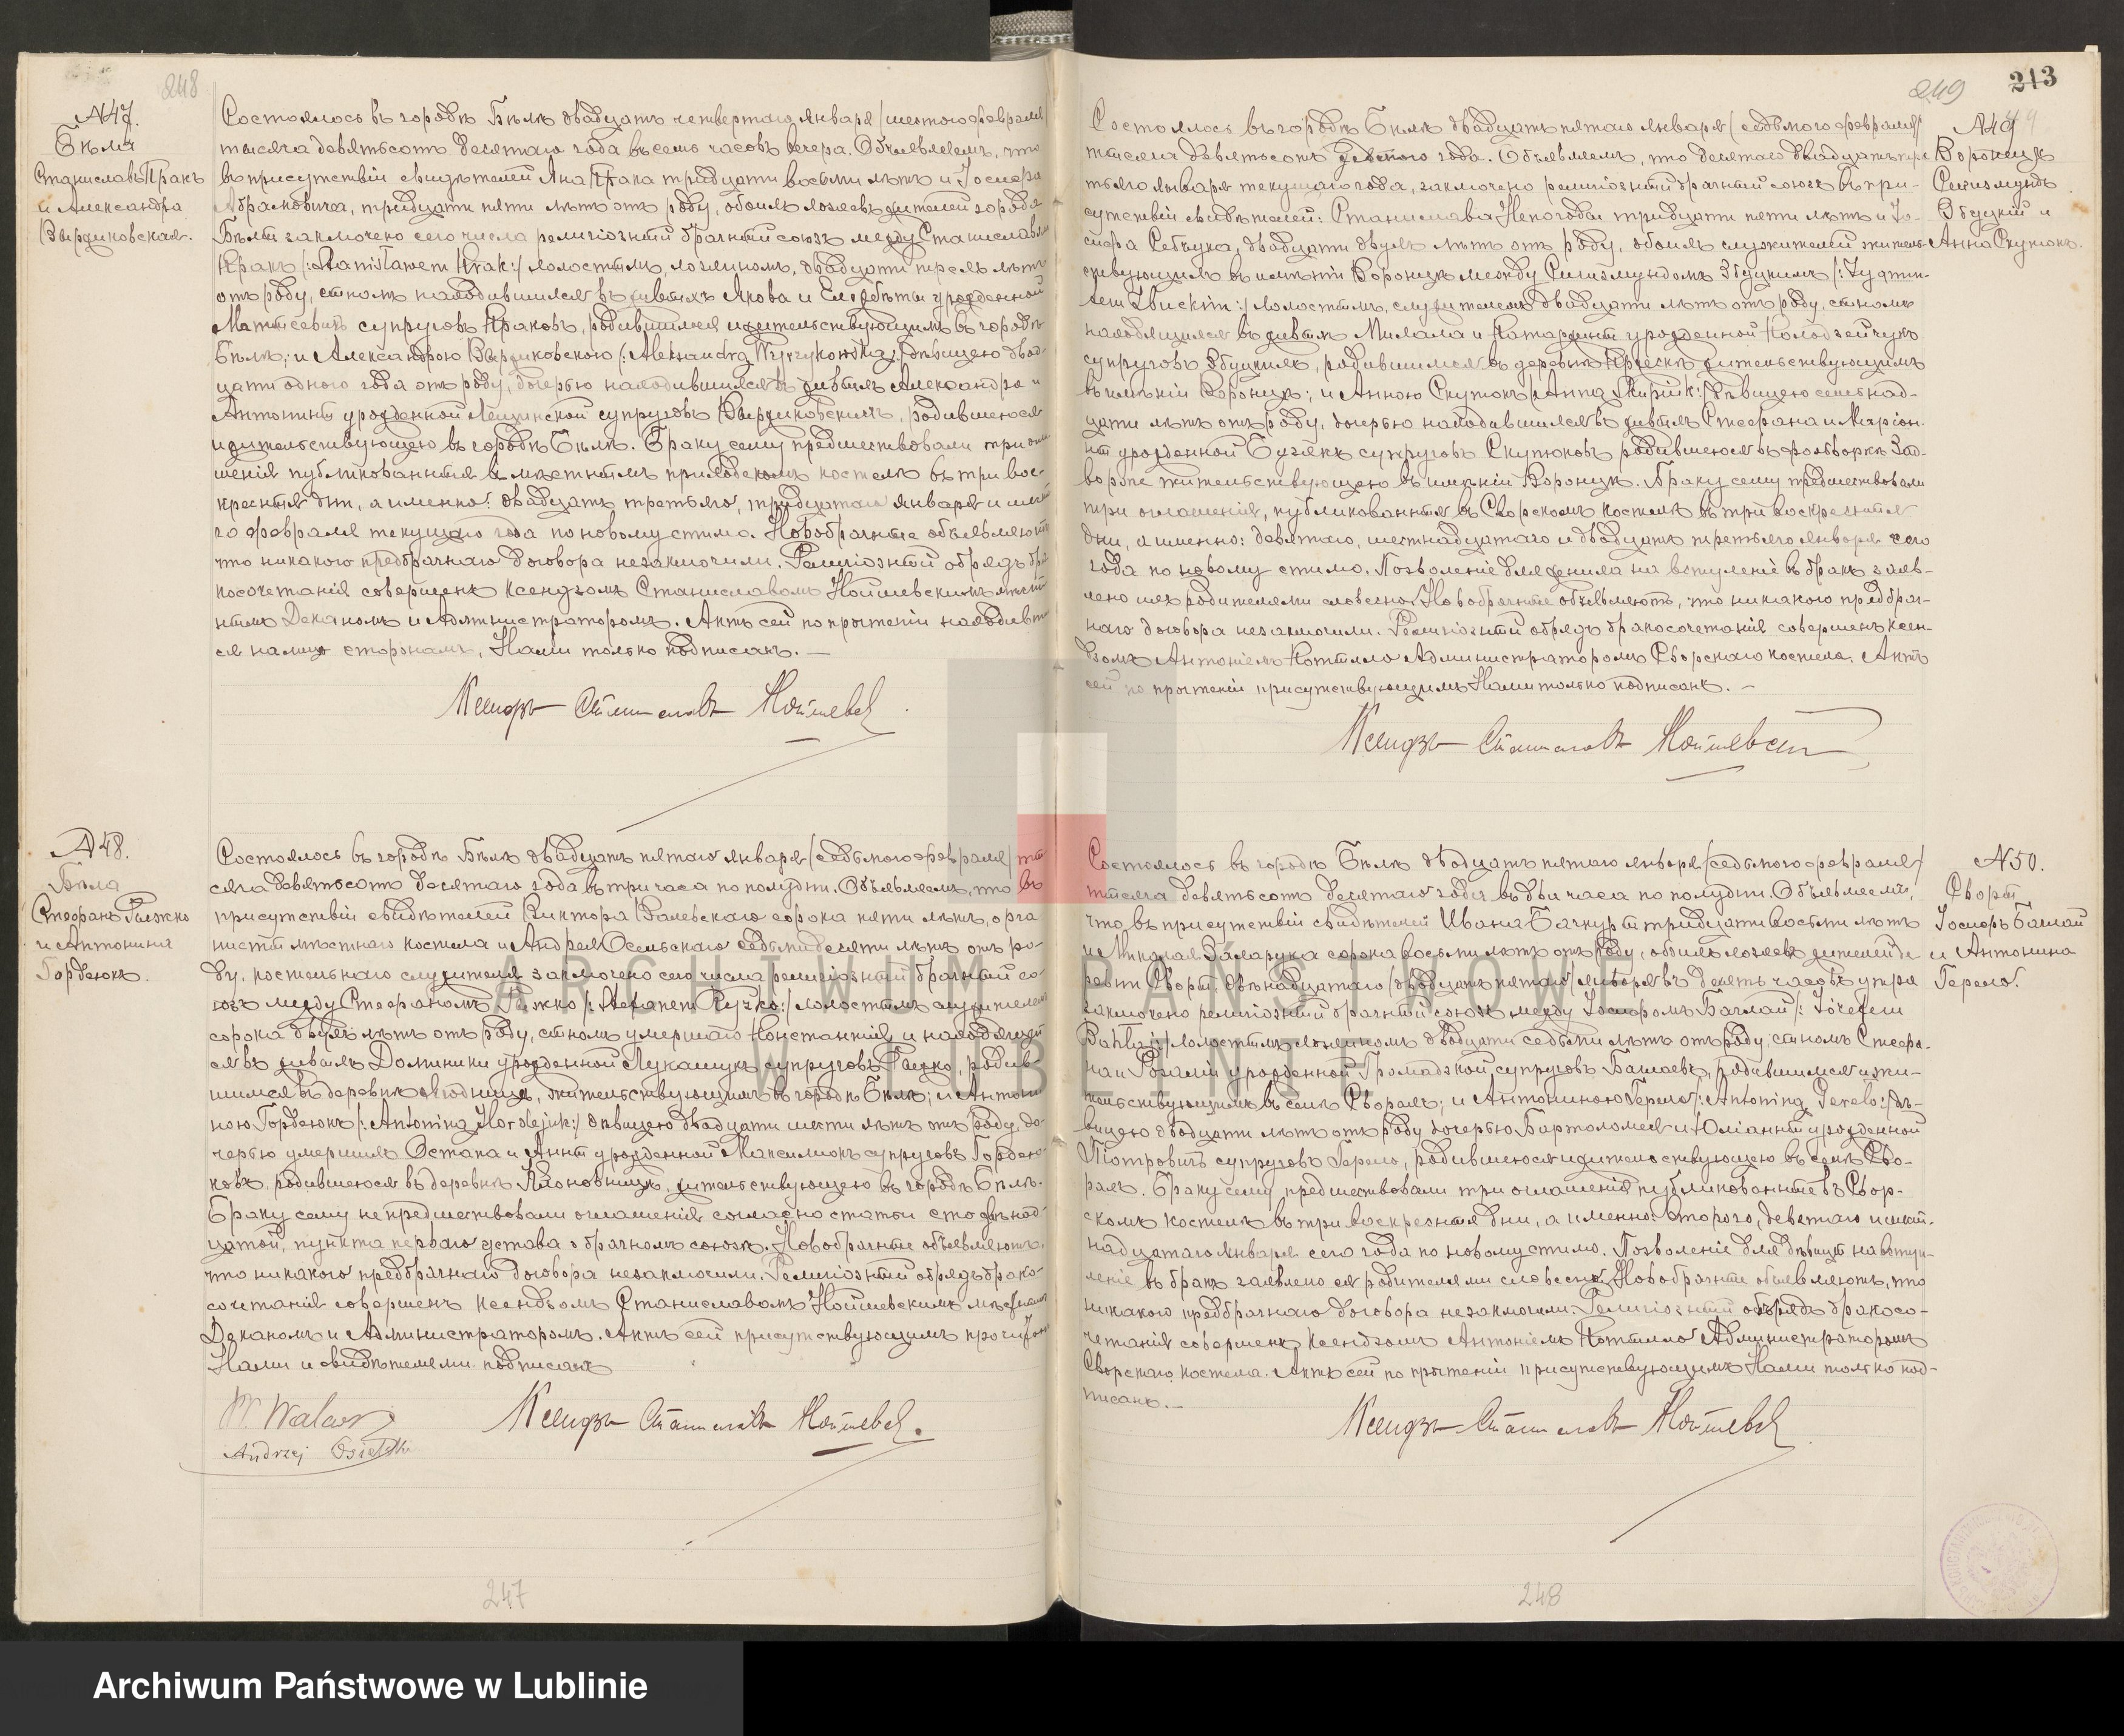 248
N47.
Бѣла
Станиславъ Пракъ
и Александра
Выржиковская.
Состоялось въ городѣ Бѣлѣ двадцать четвертаго января /шестого февраля/
тысяча девятьсотъ десятаго года въ семь часовъ вечера. Объявляемъ, что
въ присутствіи свидѣтелей Яна Прака тридцати восьми лѣтъ и Іосифа
Абрамовича, тридцати пяти лѣтъ отъ роду, обоихъ хозяевъ жителей города
Бѣлы заключено сего числа религіозный брачный союзъ между Станиславомъ
Пракъ /:Stanisławem Prak:/ холостымъ, хозяиномъ, двадцати трехъ лѣтъ
отъ роду, сыномъ находившихся въ живыхъ Якова и Елизабеты урожденной
супруговъ Праковъ, родившимся и жительствующимъ въ городѣ
Бѣлѣ; и Александрою Выржиковскою /:Aleksandrą Wyrzykowską:/ дѣвицею двад-
цати одного года отъ роду, дочерью находившихся въ живыхъ Александра и
Антонины урожденной Лещинской супруговъ Выржиковскихъ, родившеюся
и жительствующею въ городѣ Бѣлѣ. Браку сему предшествовали три огла-
шенія публикованныя въ мѣстномъ приходскомъ костелѣ въ три вос-
кресныя дни, а именно: двадцать третьяго, тридцатаго января и шесто-
го февраля текущаго года по новому стилю. Новобрачные объявляютъ
что никакого предбрачнаго договора незаключили. Религіозный обрядъ бра-
косочетанія совершенъ Ксендзомъ Станиславомъ Нойшевскимъ мѣст-
нымъ Деканомъ и Администраторомъ. Актъ сей по прочтеніи находившим-
ся на лицо сторонамъ, Нами только подписанъ. —
Ксендзъ Станиславъ Нойшевск
N48.
Бѣла
Стефанъ Рыжко
и Антонина
Гордеюкъ.
Состоялось въ городѣ Бѣлѣ двадцать пятаго января /седьмого февраля/ ты-
сяча девятьсотъ десятаго года въ три часа по полудни. Объявляемъ, что въ
присутствіи свидѣтелей Виктора Валевскаго сорока пяти лѣтъ, орга-
нисты мѣстнаго костела и Андрея Осельскаго седьмидесяти лѣтъ отъ ро-
ду, костельнаго служителя заключено сего числа религіозный брачный со-
юзъ между Стефаномъ Рыжко /:Stefanem Ryżko:/ холостымъ служителемъ
сорока двухъ лѣтъ отъ роду, сыномъ умершаго Константія и находящей-
ся въ живыхъ Доминики урожденной Лукашукъ супруговъ Рыжко, родив-
шимся въ деревнѣ жительствующимъ въ городѣ Бѣлѣ; и Антони-
ною Гордеюкъ /:Antoniną Hordejuk:/ дѣвицею двадцати шести лѣтъ отъ роду, до-
черью умершихъ Остапа и Анны урожденной Максимюкъ супруговъ Гордею-
ковъ, родившеюся въ деревнѣ Кліоновница, жительствующею въ городѣ Бѣлѣ.
Браку сему не предшествовали оглашенія согласно статьи сто двѣнад-
цатой, пункта перваго устава о брачномъ союзѣ. Новобрачные объявляютъ,
что никакого предбрачнаго договора незаключили. Религіозный обрядъ брако-
сочетанія совершенъ Ксендзомъ Станиславомъ Нойшевскимъ мѣстнымъ
Деканомъ и Администраторомъ. Актъ сей присутствующимъ прочитанъ
Нами и свидѣтелями подписанъ
W. Walews
Andrzej Osielski
Ксендзъ Станиславъ Нойшевск.
247
249
213
N49
Вороницъ
Сигизмундъ
Збуцкій и
Анна Скупюкъ.
Состоялось въ городѣ Бѣлѣ двадцать пятаго января /седьмого февраля/
тысяча девятьсотъ десятаго года. Объявляемъ, что десятаго /двадцать тре-
тьяго января текущаго года, заключено религіозный брачный союзъ въ при-
сутствіи свидѣтелей: Станислава Непогоды тридцати пяти лѣтъ и Іо-
сифа двадцати двухъ лѣтъ отъ роду, обоихъ служителей житель-
ствующихъ въ имѣніи Вороницъ между Сигизмундомъ Збуцкимъ /:Zygmun-
tem Zbuckim:/ холостымъ, служителемъ двадцати лѣтъ отъ роду, сыномъ
находящихся въ живыхъ Михаила и Катаржины урожденной Колодзейчукъ
супруговъ Збуцкихъ, родившимся въ деревнѣ жительствующимъ
въ имѣніи Вороницъ; и Анною Скупюкъ /:Anną Skupiuk:/ дѣвицею семнад-
цати лѣтъ отъ роду, дочерью находившихся въ живыхъ Стефана и Маріан-
ны урожденной супруговъ Скупюковъ родившеюся въ фольваркѣ Зад-
ворже жительствующею въ имѣніи Вороницъ. Браку сему предшествовали
три оглашенія, публикованныя въ Сворскомъ костелѣ въ три воскресныя
дни, а именно: девятаго, шестнадцатаго и двадцать третьяго января сего
года по новому стилю. Позволеніе для жениха на вступленіе въ бракъ заяв-
лено ихъ родителями словесно. Новобрачные объявляютъ, что никакого предбрач-
наго договора незаключили. Религіозный обрядъ бракосочетанія совершенъ Ксен-
дзомъ Антоніемъ Котылло Администраторомъ Сворскаго костела. Актъ
сей по прочтеніи присутствующимъ Нами только подписанъ. —
Ксендзъ Станиславъ Нойшевски
N50.
Своры
Іосифъ Бахлай
и Антонина
Герело.
Состоялось въ городѣ Бѣлѣ двадцать пятаго января /седьмого февраля/
тысяча девятьсотъ десятаго года въ два часа по полудни. Объявляемъ,
что въ присутствіи свидѣтелей Ивана Бачкуры тридцати восьми лѣтъ
и Николая сорока восьми лѣтъ отъ роду, обоихъ хозяевъ жителей де-
ревни Своры, двѣнадцатаго /двадцать пятаго/ января въ девять часовъ утра
заключено религіозный брачный союзъ между Іосифомъ Бахлай /:Józefem
Bahłaj:/ холостымъ хозяиномъ двадцати седьми лѣтъ отъ роду, сыномъ Стефа-
на и Розаліи урожденной Громадзкой супруговъ Бахлаевъ, родившимся и жи-
тельствующимъ въ селѣ Сворахъ; и Антониною Герело /:Antoniną Gereło:/ дѣ-
вицею двадцати лѣтъ отъ роду дочерью Бартоломея и Юліанны урожденной
Піотровичъ супруговъ Герело, родившеюся и жительствующею въ селѣ Сво-
рахъ. Браку сему предшествовали три оглашенія публикованные въ Свор-
скомъ костелѣ въ три воскресныя дни, а именно: второго, девятаго и шест-
надцатаго января сего года по новому стилю. Позволеніе для дѣвицы на вступ-
леніе въ бракъ заявлено ея родителями словесно. Новобрачные объявляютъ, что
никакого предбрачнаго договора незаключили. Религіозный обрядъ бракосо-
четанія совершенъ Ксендзомъ Антоніемъ Котылло Администраторомъ
Сворскаго костела. Актъ сей по прочтеніи присутствующимъ Нами только под-
писанъ. —
Ксендзъ Станиславъ Нойшевск
248
ARCHIWUM PAŃSTWOWE
W LUBLINIE
Archiwum Państwowe w Lublinie